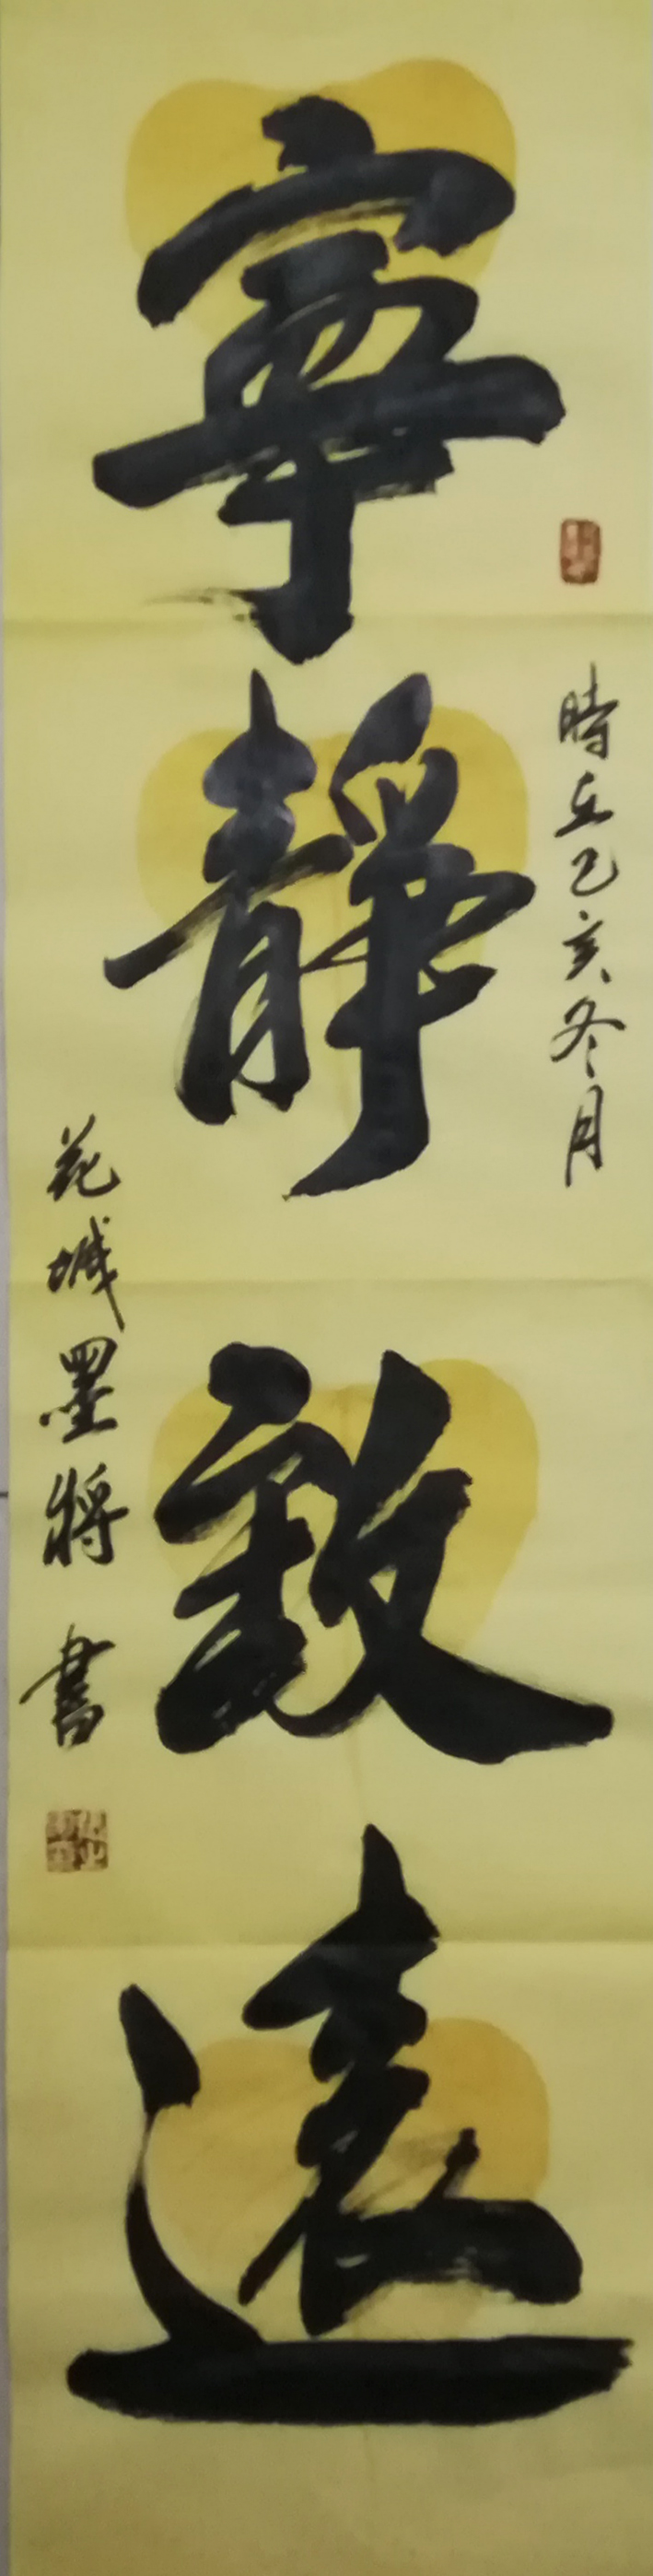 寧靜致遠
時在乙亥冬月
花城墨將書